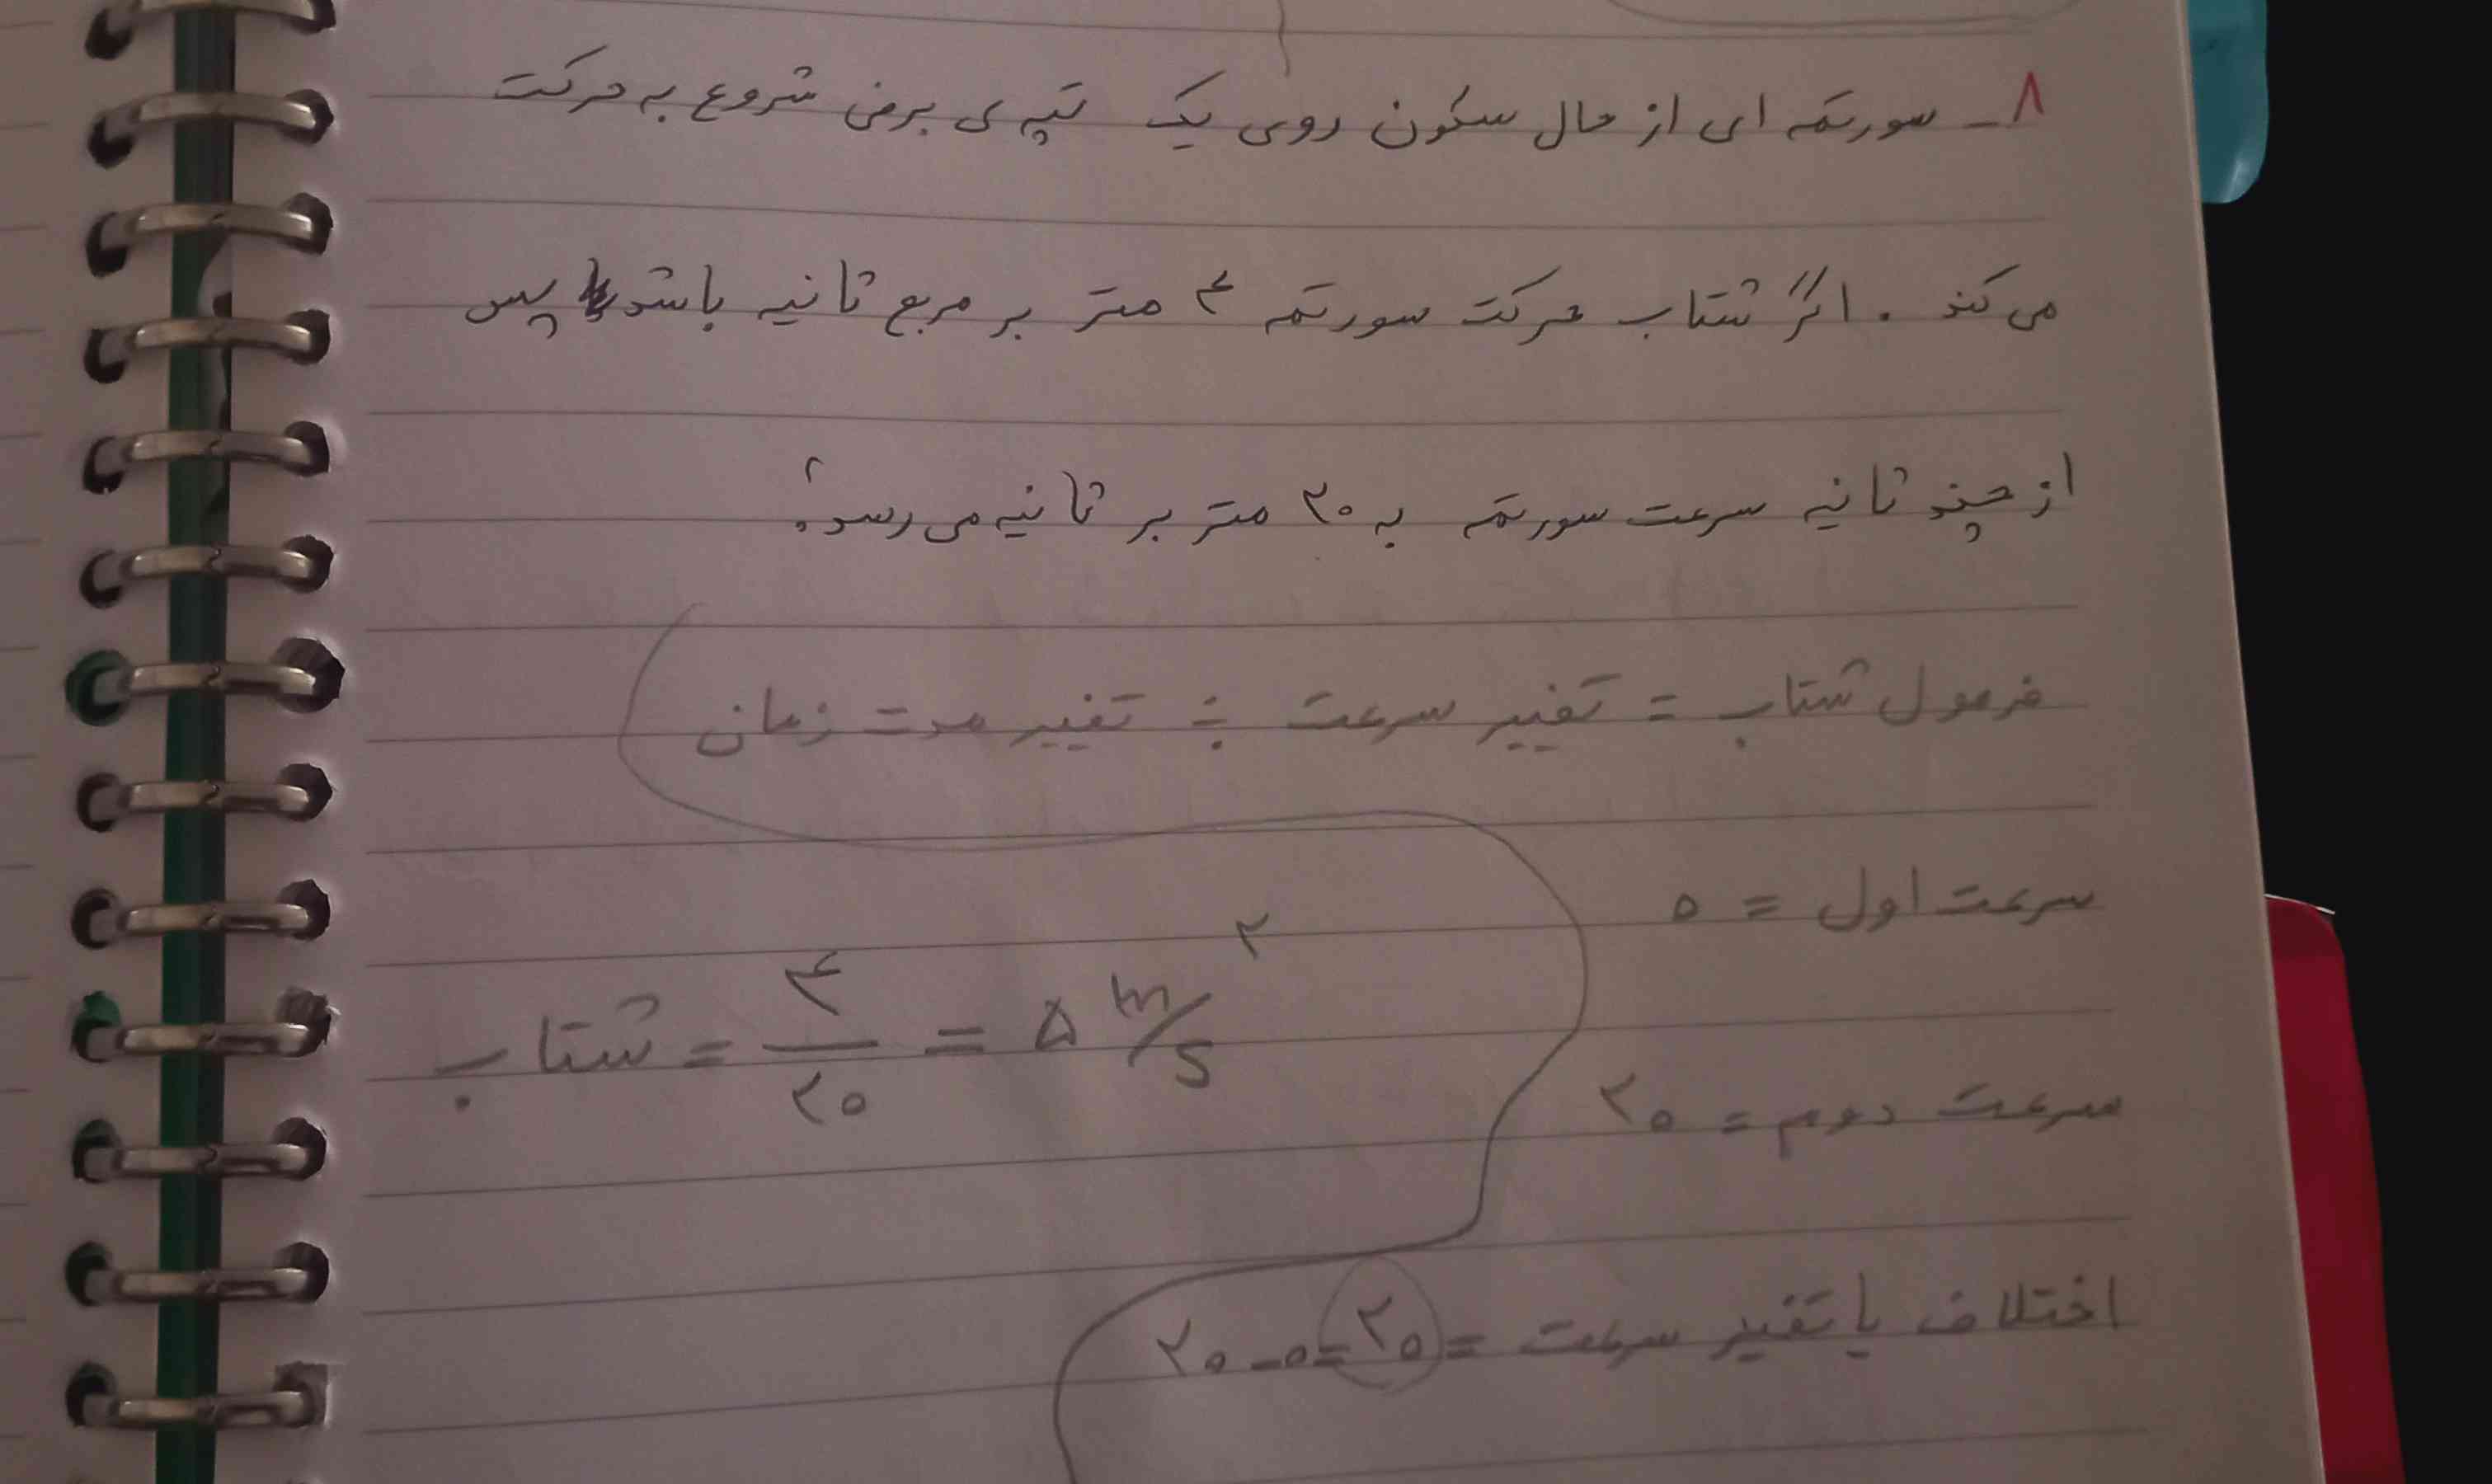 ۸ـ سورتمه ای از حال سکون روی یک تپه ی برفی شروع به حرکت
می کند . اگر شتاب حرکت سورتمه ۴ متر بر مربع ثانیه باشد پس
از چند ثانیه سرعت سورتمه به ۲۰ متر بر ثانیه می رسد؟
فرمول شتاب = تغییر سرعت ÷ تغییر مدت زمان
سرعت اول = ۰
شتاب = ۴/۲۰ = ۵ m/s ۲
سرعت دوم = ۲۰
اختلاف یا تغییر سرعت = ۲۰ = ۰ - ۲۰